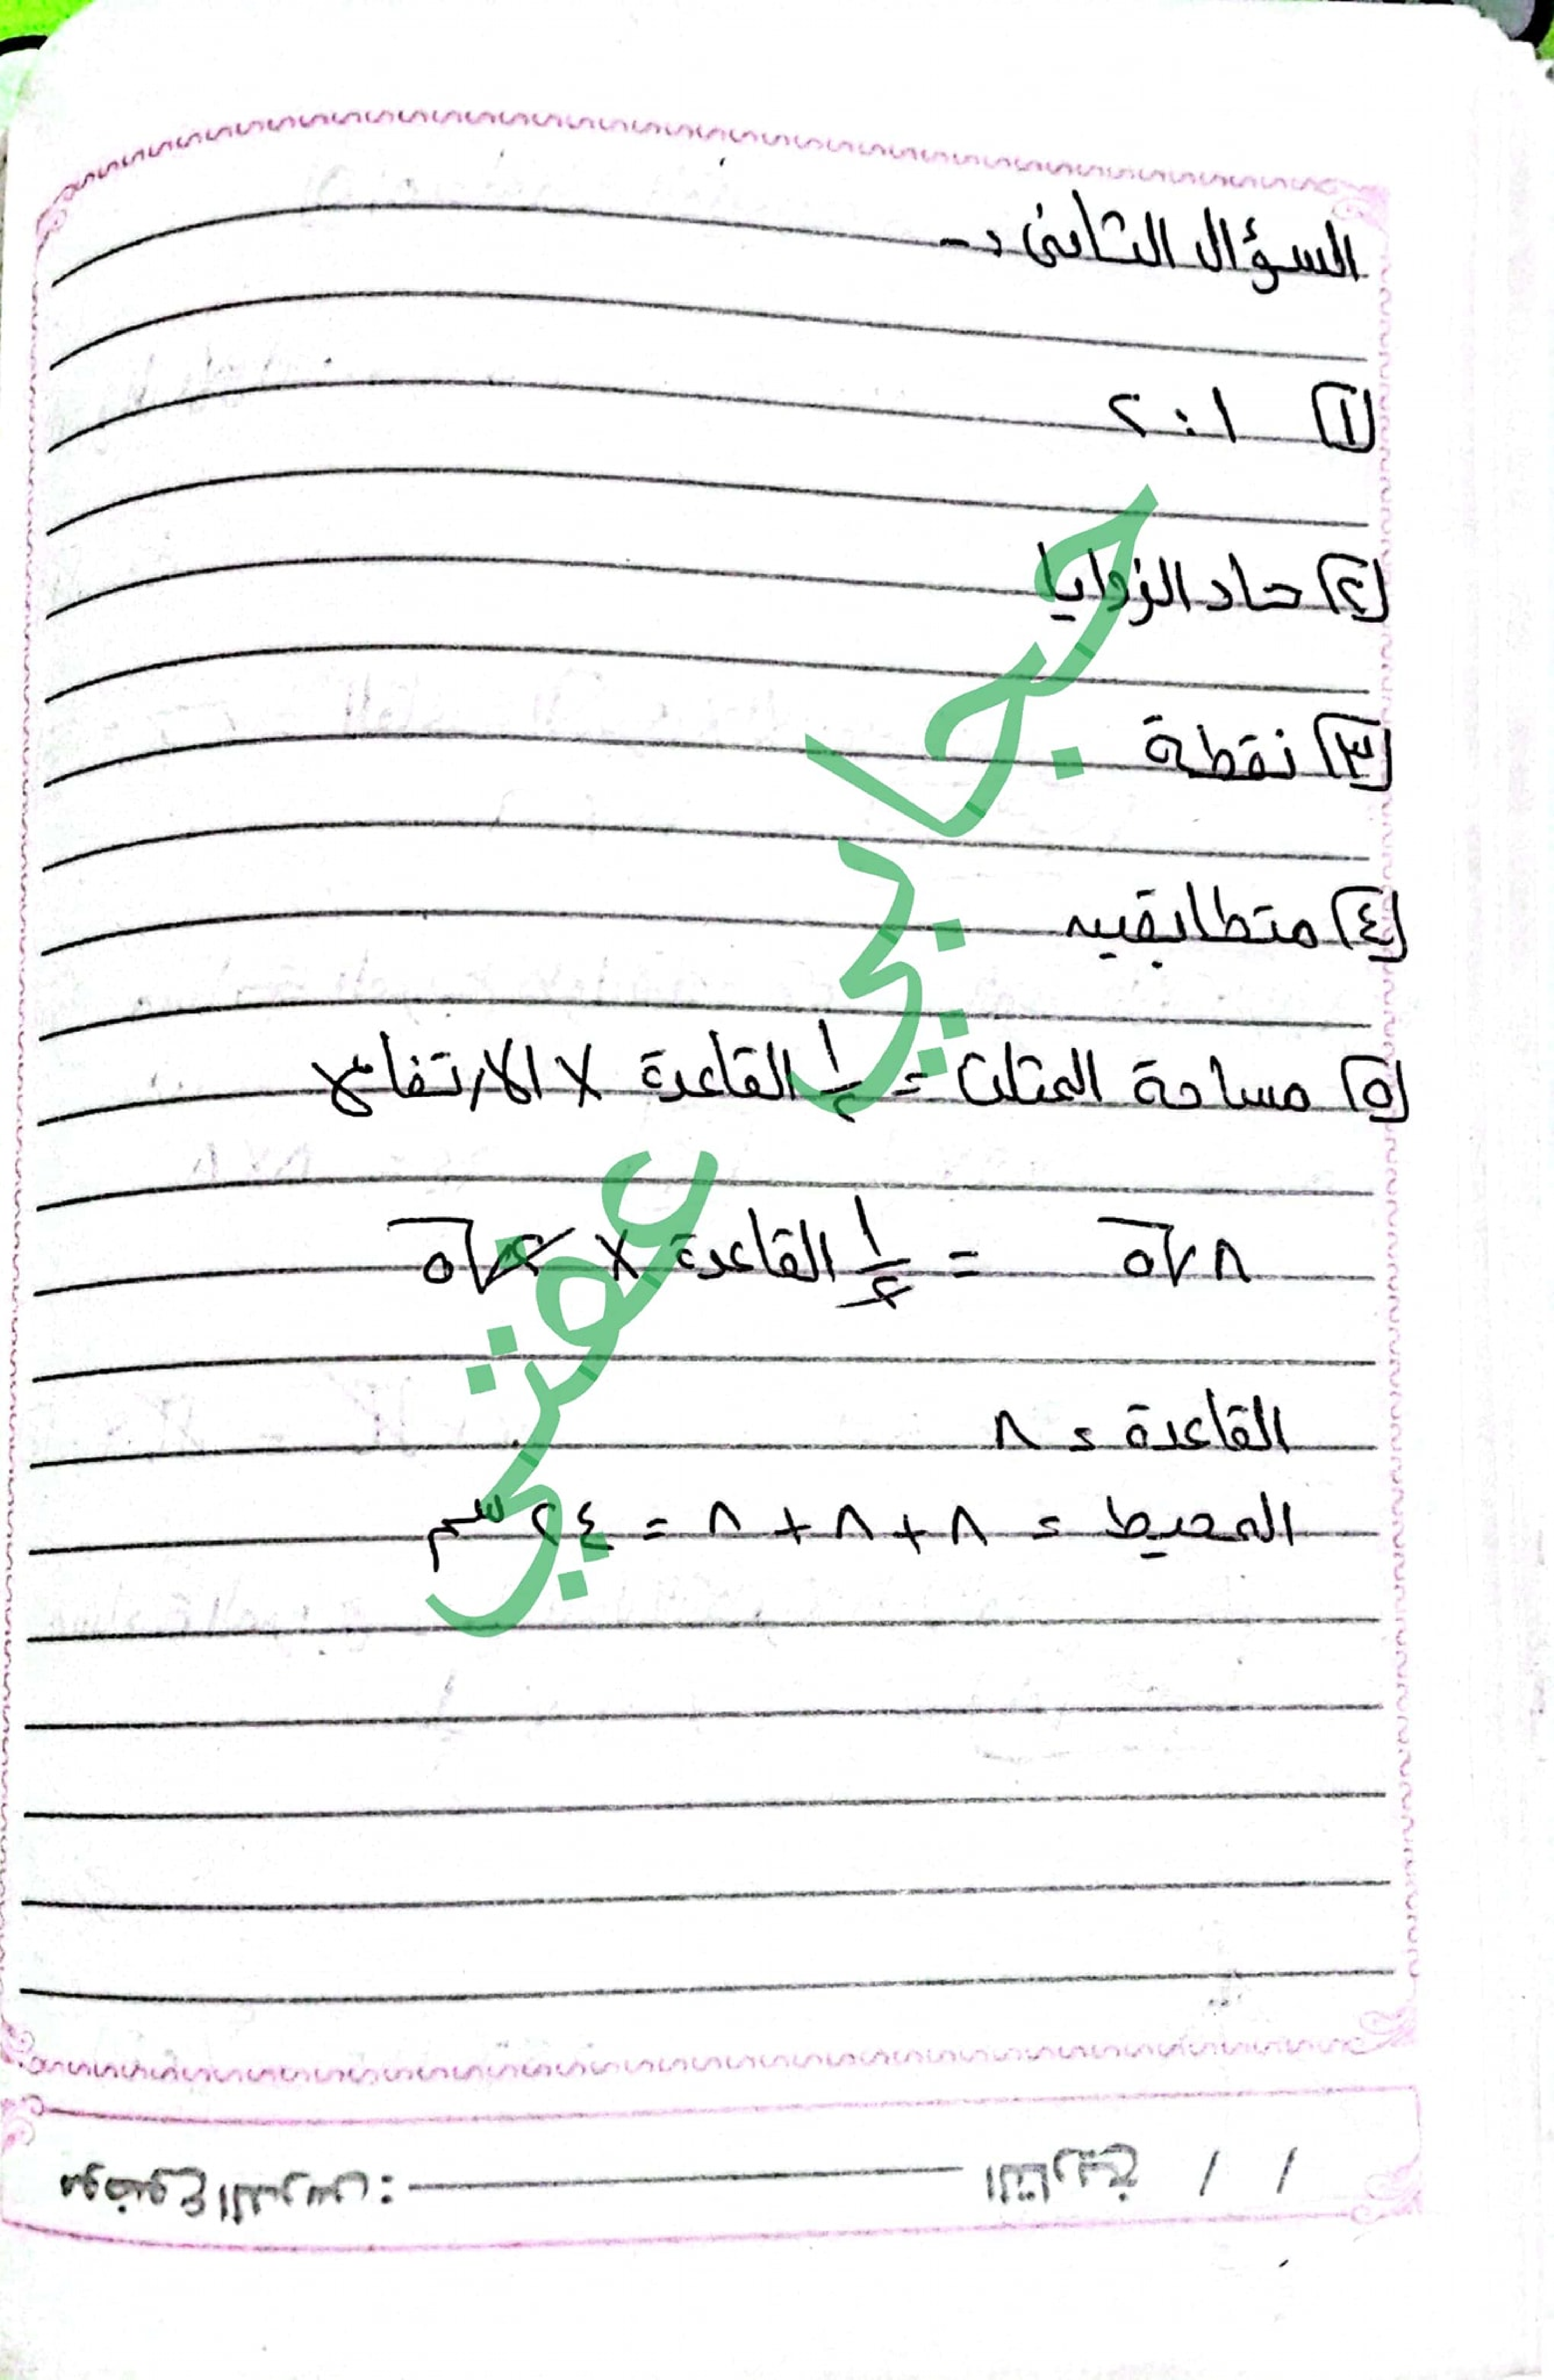 السؤال الثانى :-
١ ١ : ٢
٢ حاد الزوايا
٣ نقطة
٤ متطابقين
٥ مساحة المثلث = ١/٢ القاعدة × الارتفاع
٨√٥ = ١/٢ القاعدة × ٢√٥
القاعدة = ٨
المحيط = ٨ + ٨ + ٨ = ٢٤ سم
التاريخ / /